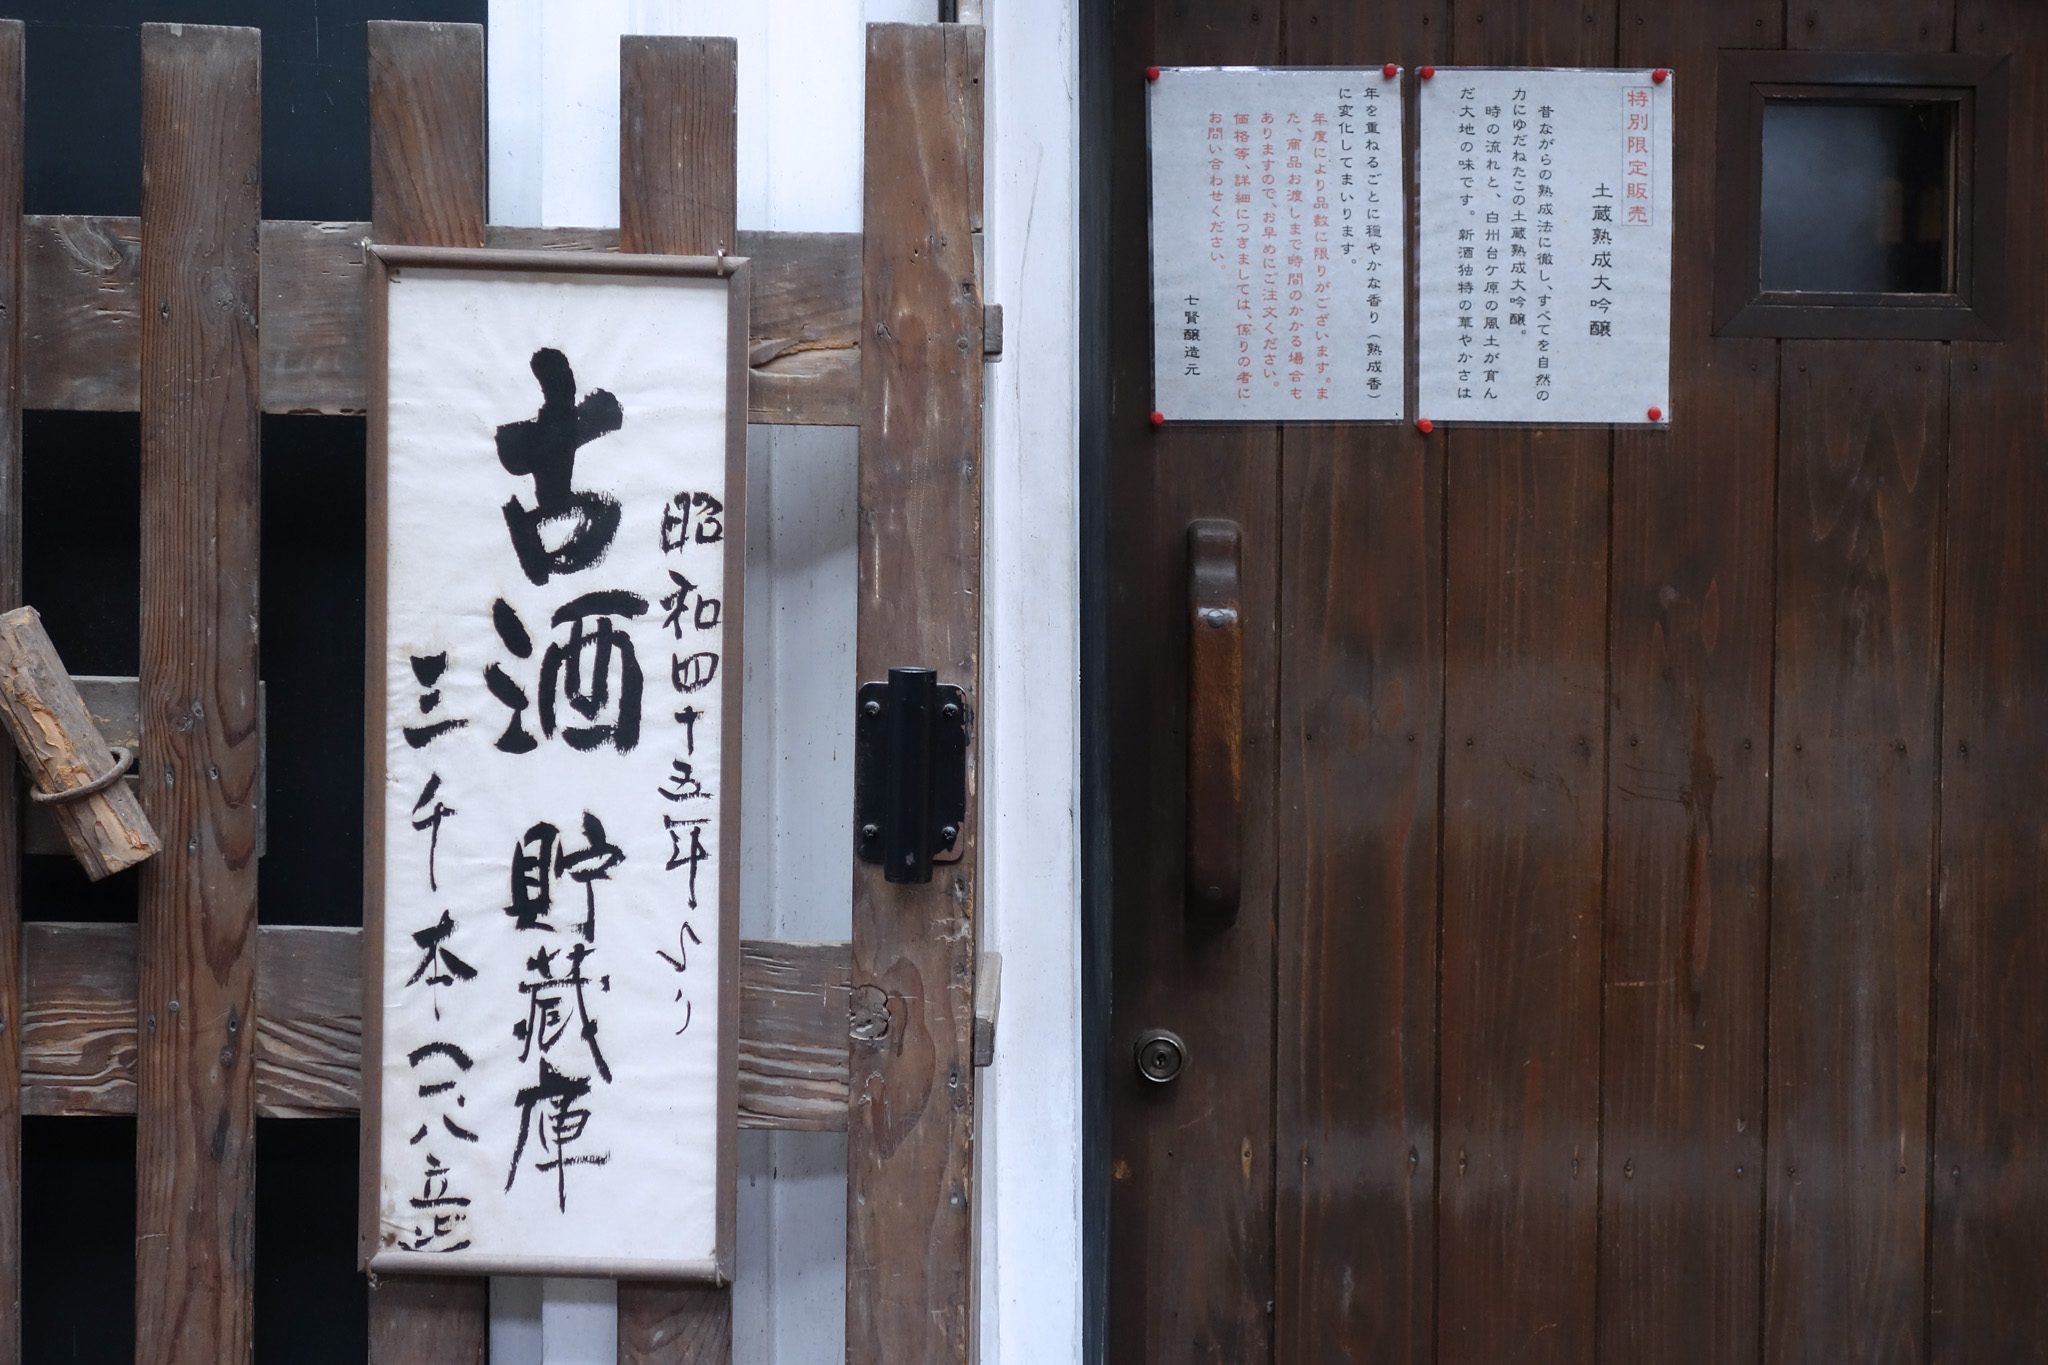 昭和四十五年より
古酒 貯蔵庫
三千本(一、八立
特別限定販売
土蔵熟成大吟醸
昔ながらの熟成法に徹し、すべてを自然の
力にゆだねたこの土蔵熟成大吟醸。
時の流れと、白州台ケ原の風土が育ん
だ大地の味です。新酒独特の華やかさは
年を重ねるごとに穏やかな香り(熟成香)
に変化してまいります。
年度により品数に限りがございます。ま
た、商品お渡しまで時間のかかる場合も
ありますので、お早めにご注文ください。
価格等、詳細につきましては、係りの者に
お問い合わせください。
七賢醸造元